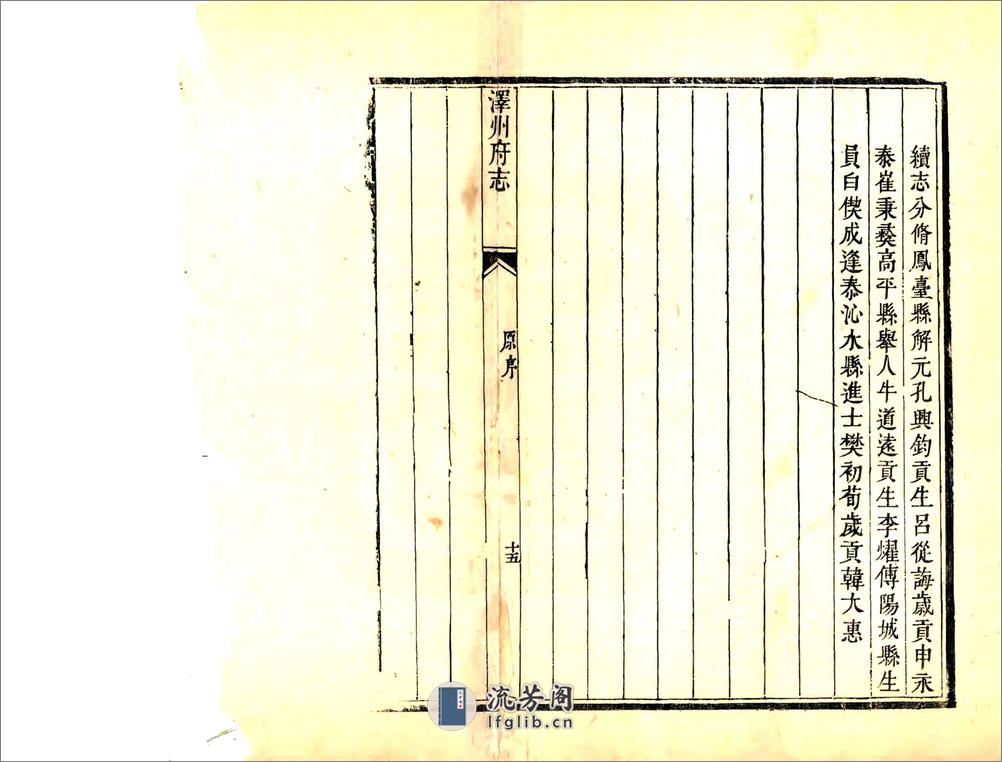 續志分脩鳳臺縣解元孔興鈞貢生呂從誨歲貢申永
泰崔秉彝高平縣舉人牛道遠貢生李燿傳陽城縣生
員白偰成逢泰沁水縣進士樊初荀歲貢韓大惠
澤州府志
原序
十五
流芳阁
lfglib.cn